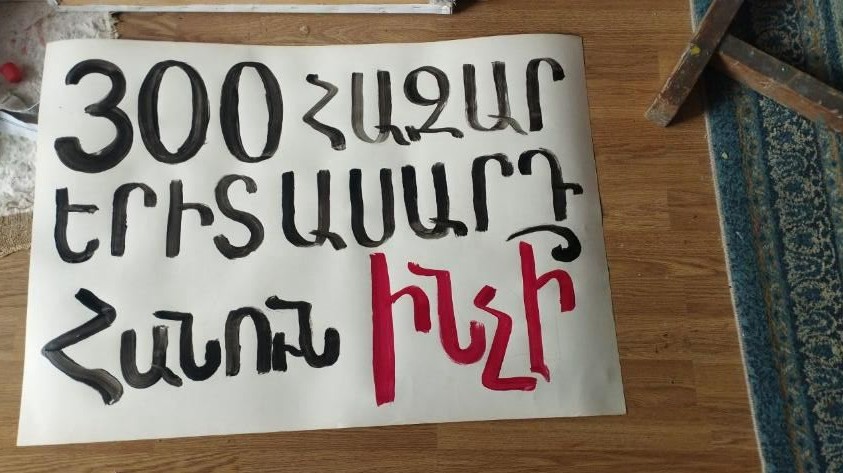 300 ՀԱԶԱՐ
ԵՐԻՏԱՍԱՐԴ
Հանուն Ինչի՞